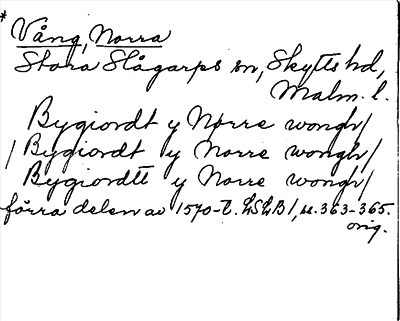 * Vång, Norra
Stora Slågarps sn, Skytts hd,
Malm. l.
Bygiordt y Norre wongh/
/Bygiordt y Norre wongh/
Bygiordtt y Norre wongh/
förra delen av 1570-t. LSLB 1, s. 363-365.
orig.